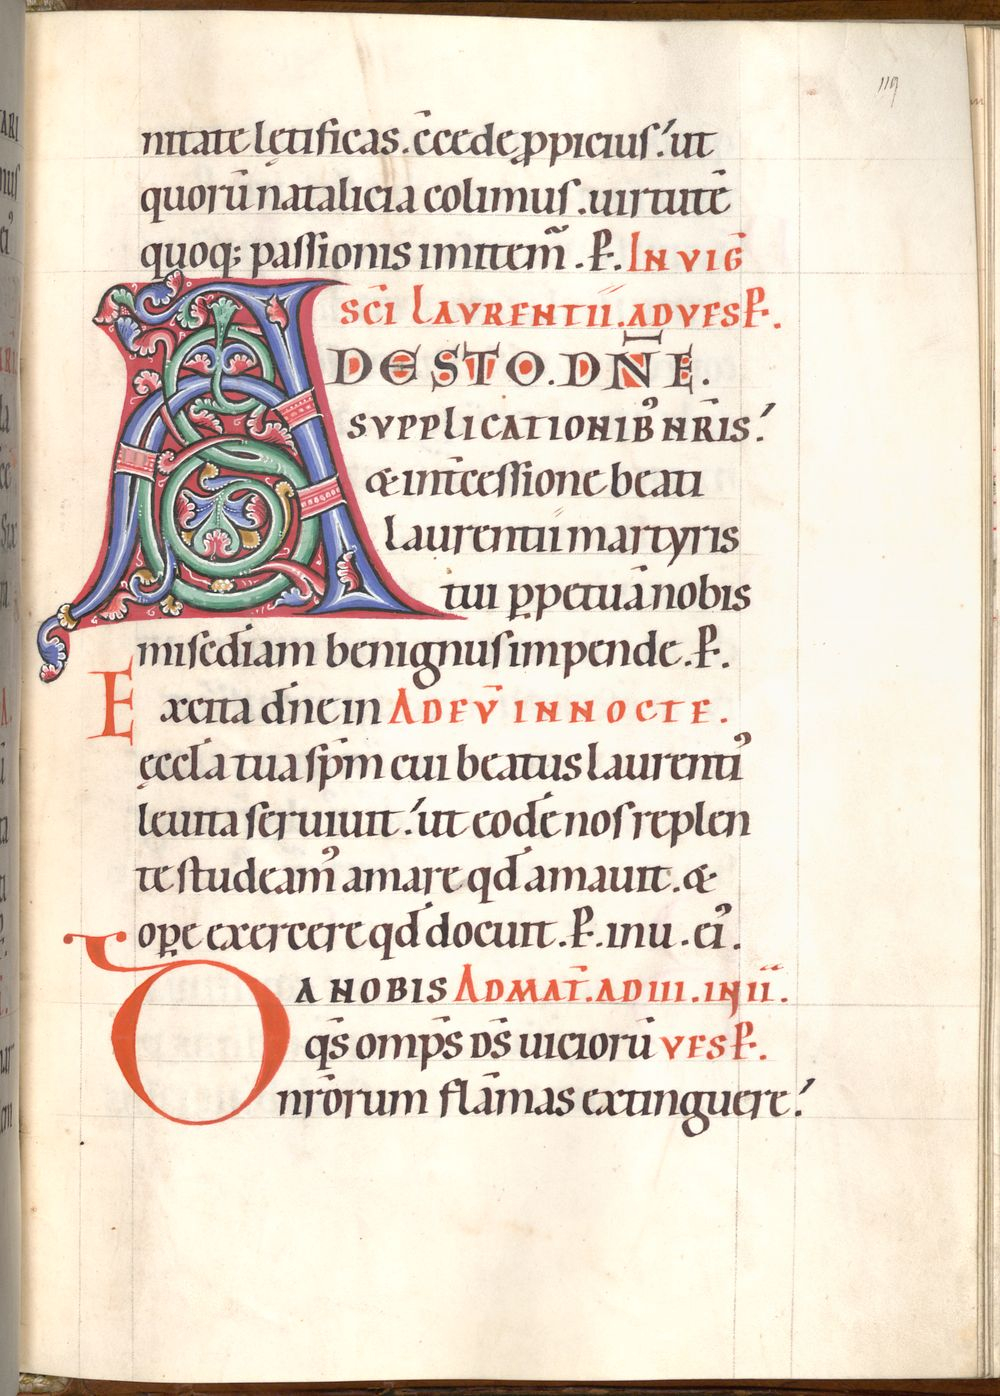 119
nitate lętificas. c̄cede ꝓpicius; ut
quorū natalicia colimus. uirtutē
quoq; passionis imitem̃. P̶. IN VIG̅
SC̄I LAVRENTII. AD VESP̶.
ADESTO. DN̄E.
SVPPLICATIONIB᾿ NR̄IS;
& int̄cessione beati
Laurentii martyris
tui ꝑpetuā nobis
miscd̄iam benignus impende. P̶.
Excita dn̄e in AD EV̄ IN NOCTE.
ęccl̄a tua sp̄m cui beatus laurenti᾿
leuita seruiuit; ut eodē nos replen
te studeam᾿ amare qd̄ amauit. &
oꝑe exercere qd̄ docuit. P̶. in u. ei᾿.
DA NOBIS AD MAT̄. AD III. IN II.
qs̄ omp̄s DS̄ uiciorū VESP̶.
nrōrum flāmas extinguere;